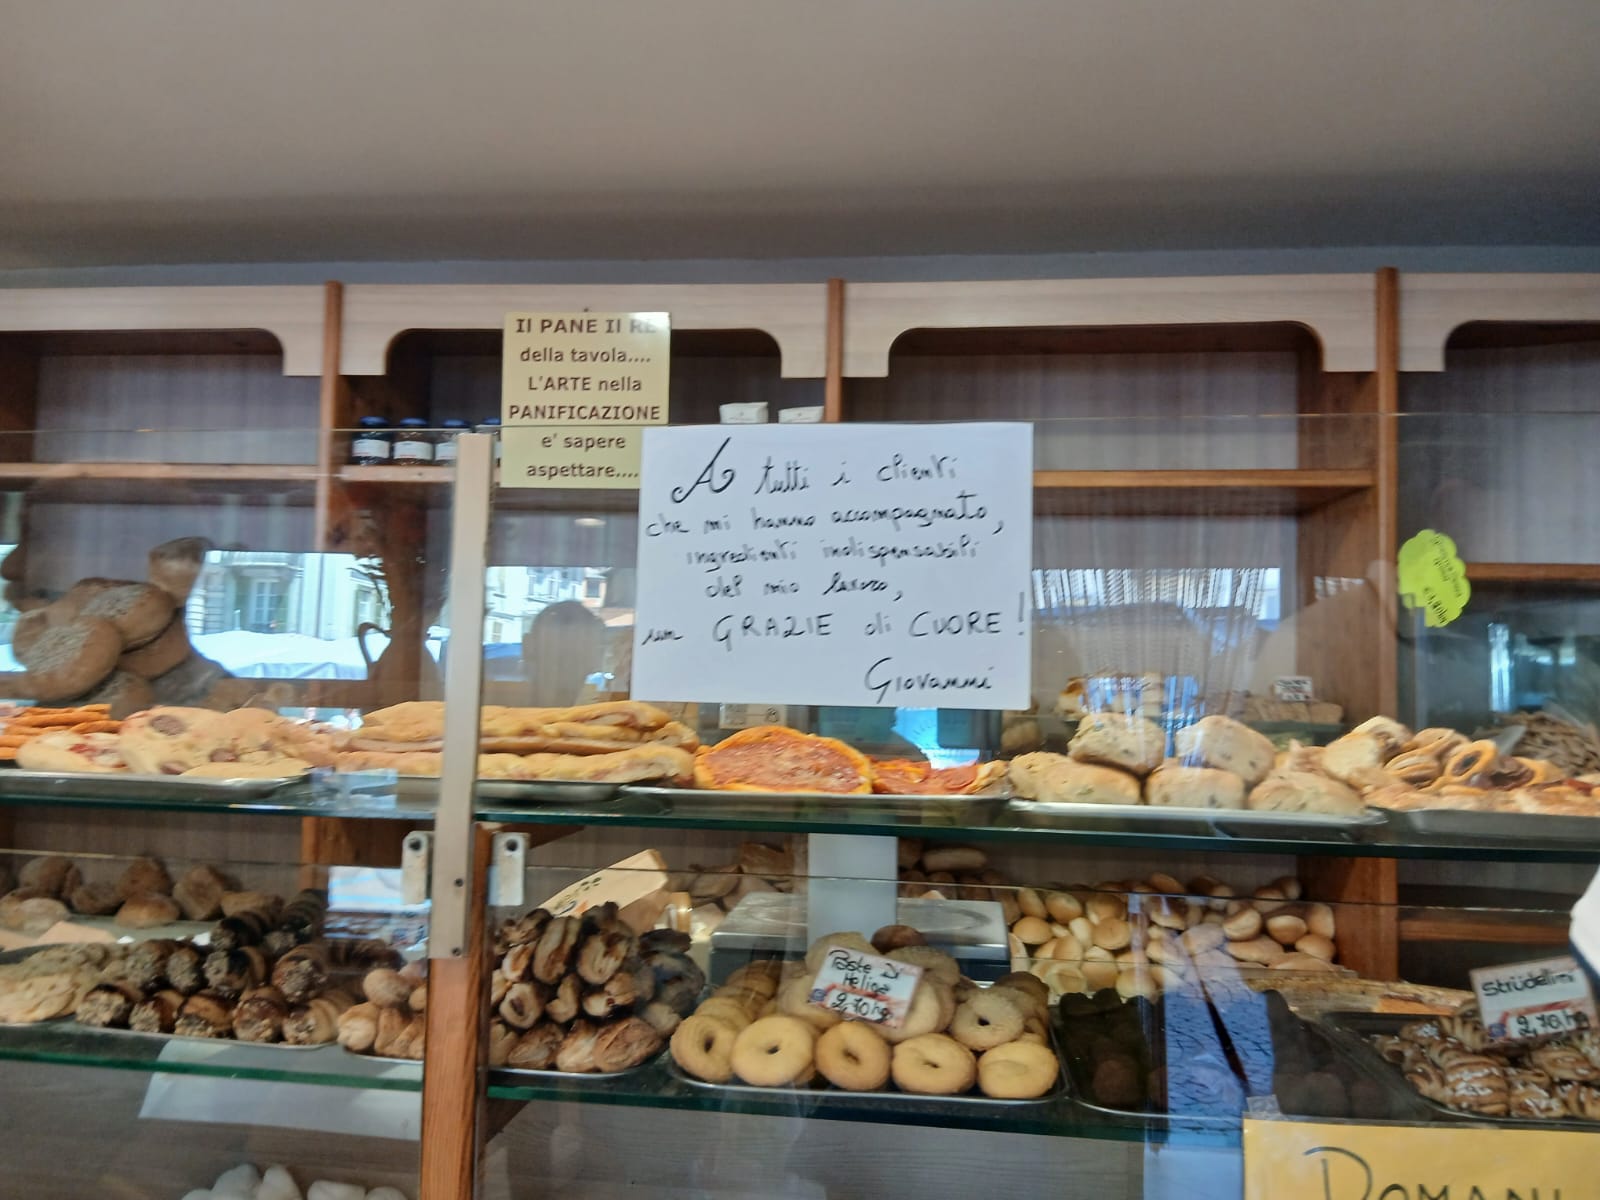 Il PANE Il RE
della tavola....
L'ARTE nella
PANIFICAZIONE
e' sapere
aspettare....
A tutti i clienti
che mi hanno accompagnato,
ingredienti indispensabili
del mio lavoro,
un GRAZIE di CUORE!
Giovanni
Paste Di
Meliga
2,70 hg
Strüdellini
2,70 hg
DOMANI